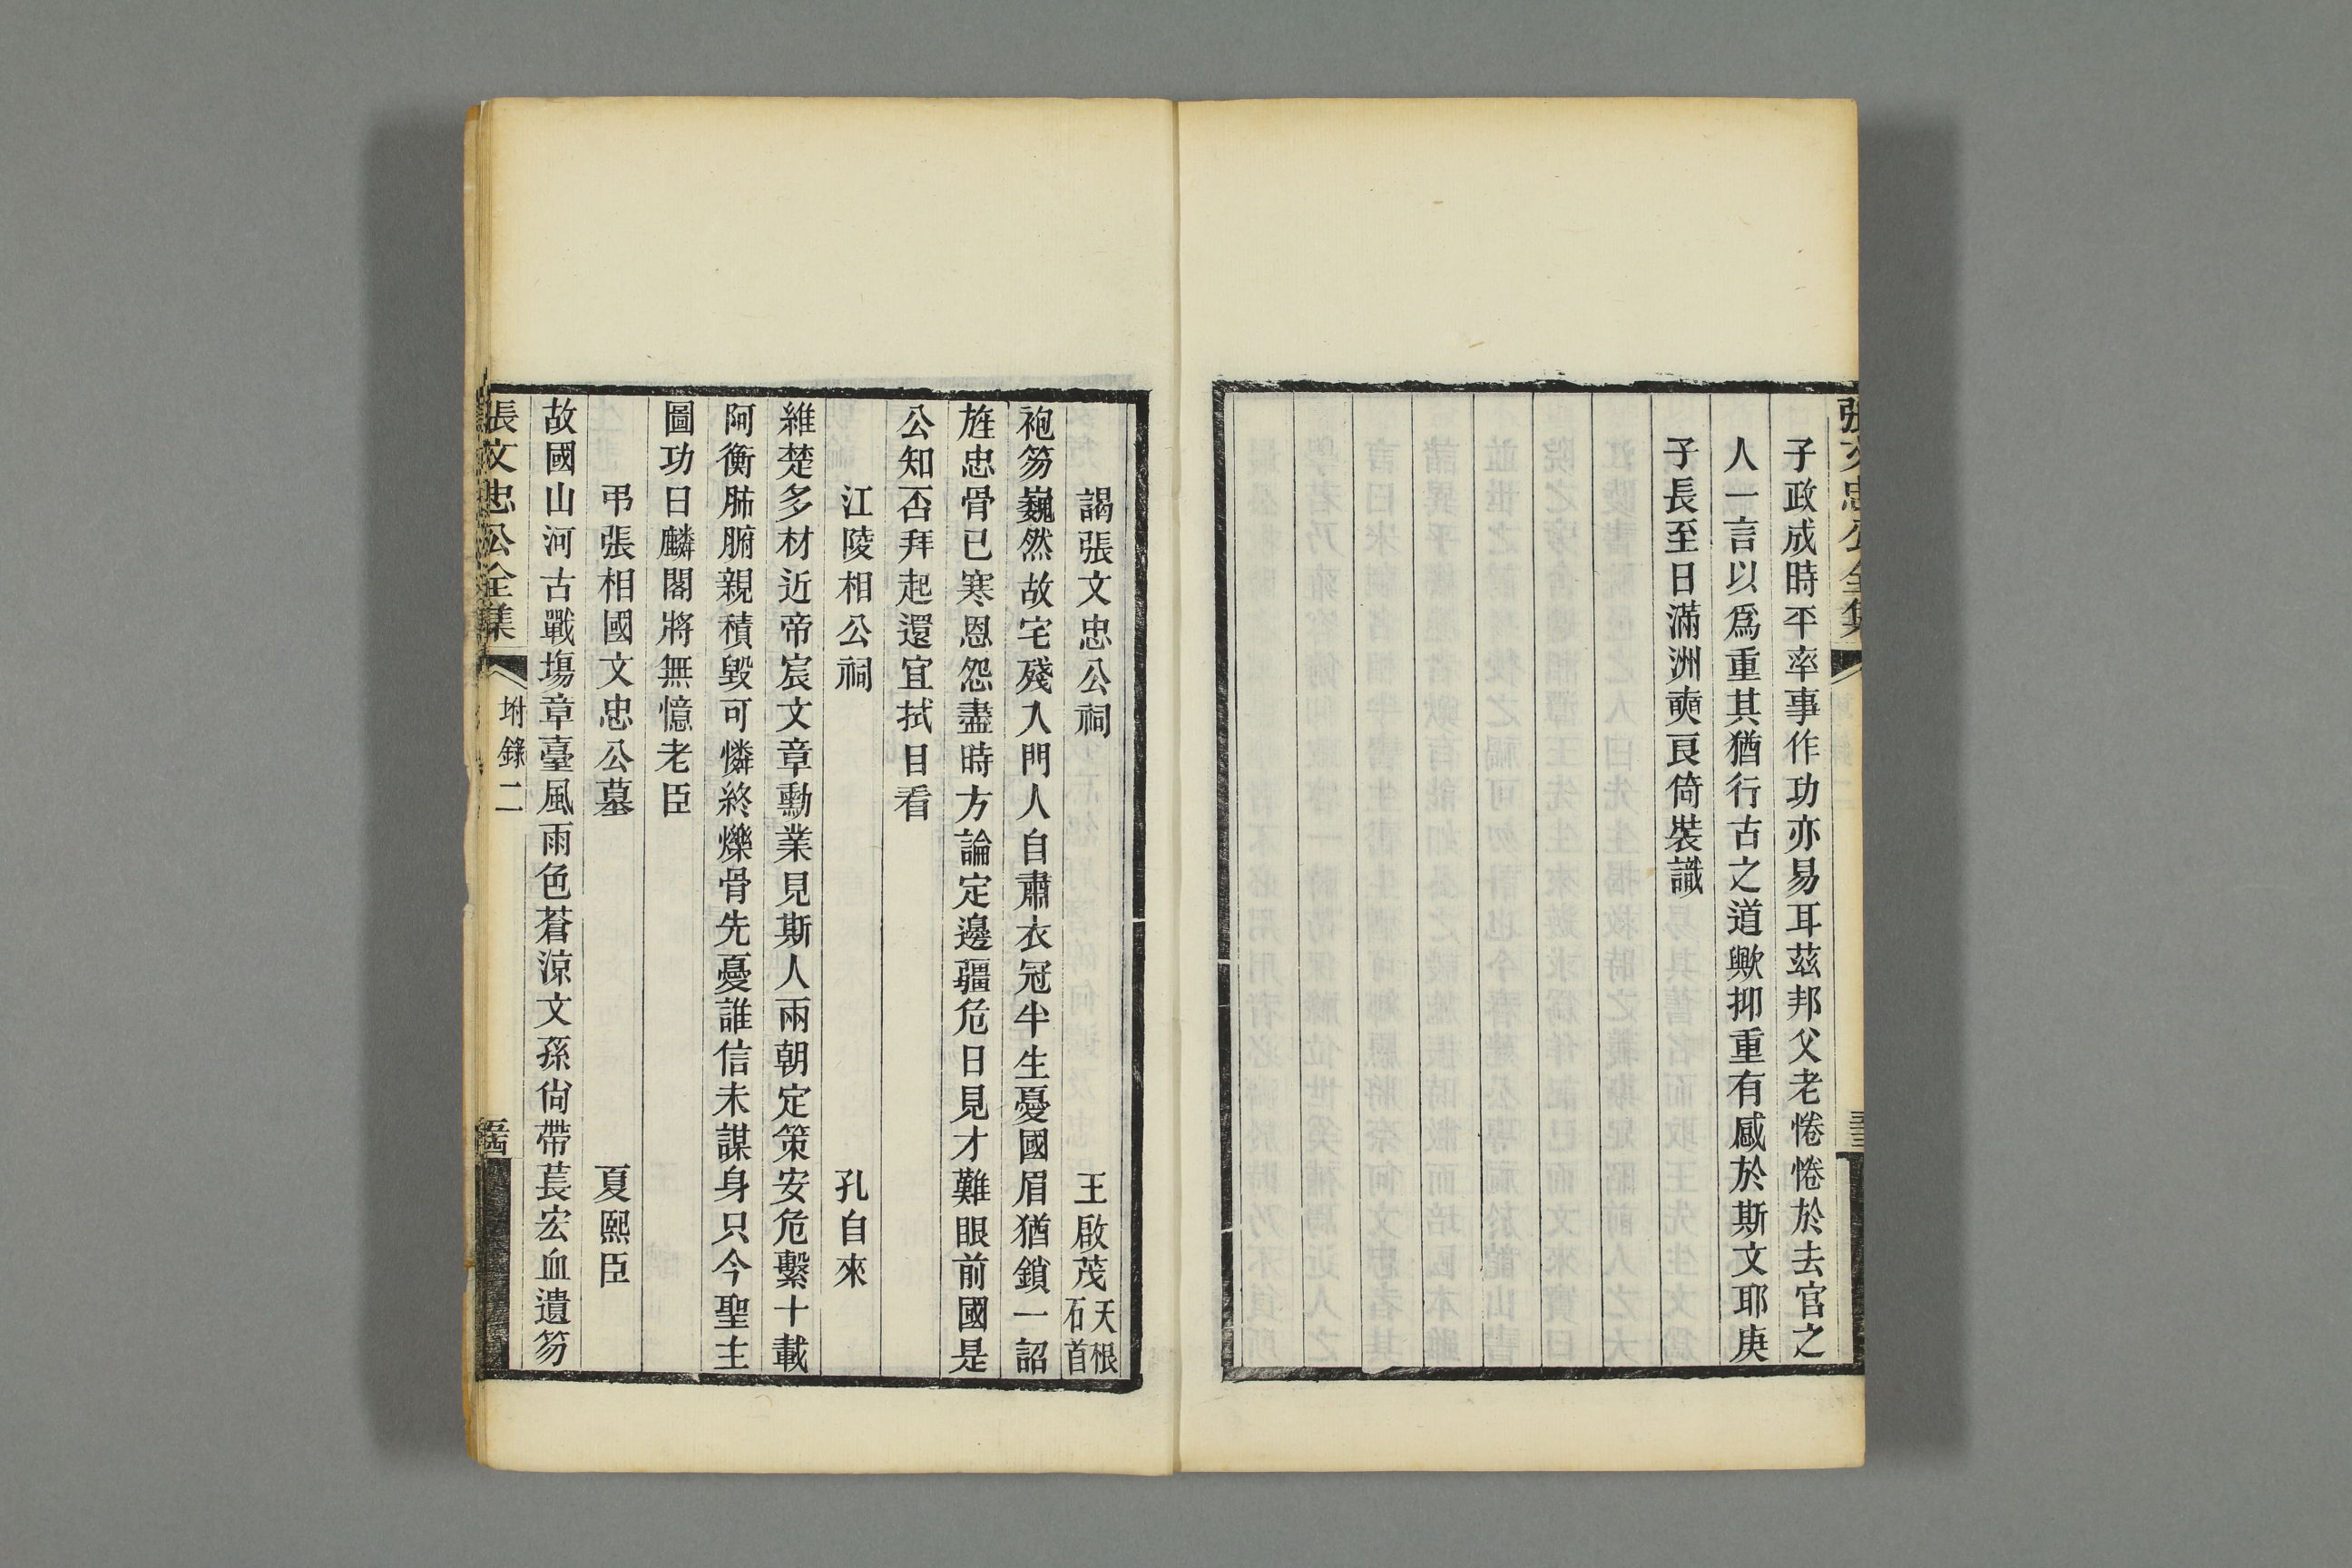 張文忠公全集
子政成時平率事作功亦易耳茲邦父老惓惓於去官之
人一言以爲重其猶行古之道歟抑重有感於斯文耶庚
子長至日滿洲奭良倚裝識
謁張文忠公祠 王啟茂天根石首
袍笏巍然故宅殘入門人自肅衣冠半生憂國眉猶鎖一詔
旌忠骨已寒恩怨盡時方論定邊疆危日見才難眼前國是
公知否拜起還宜拭目看
江陵相公祠 孔自來
維楚多材近帝宸文章勳業見斯人兩朝定策安危繫十載
阿衡肺腑親積毀可憐終爍骨先憂誰信未謀身只今聖主
圖功日麟閣將無憶老臣
弔張相國文忠公墓 夏熙臣
故國山河古戰塲章臺風雨色蒼涼文孫尙帶萇宏血遺笏
張文忠公全集 坿錄二